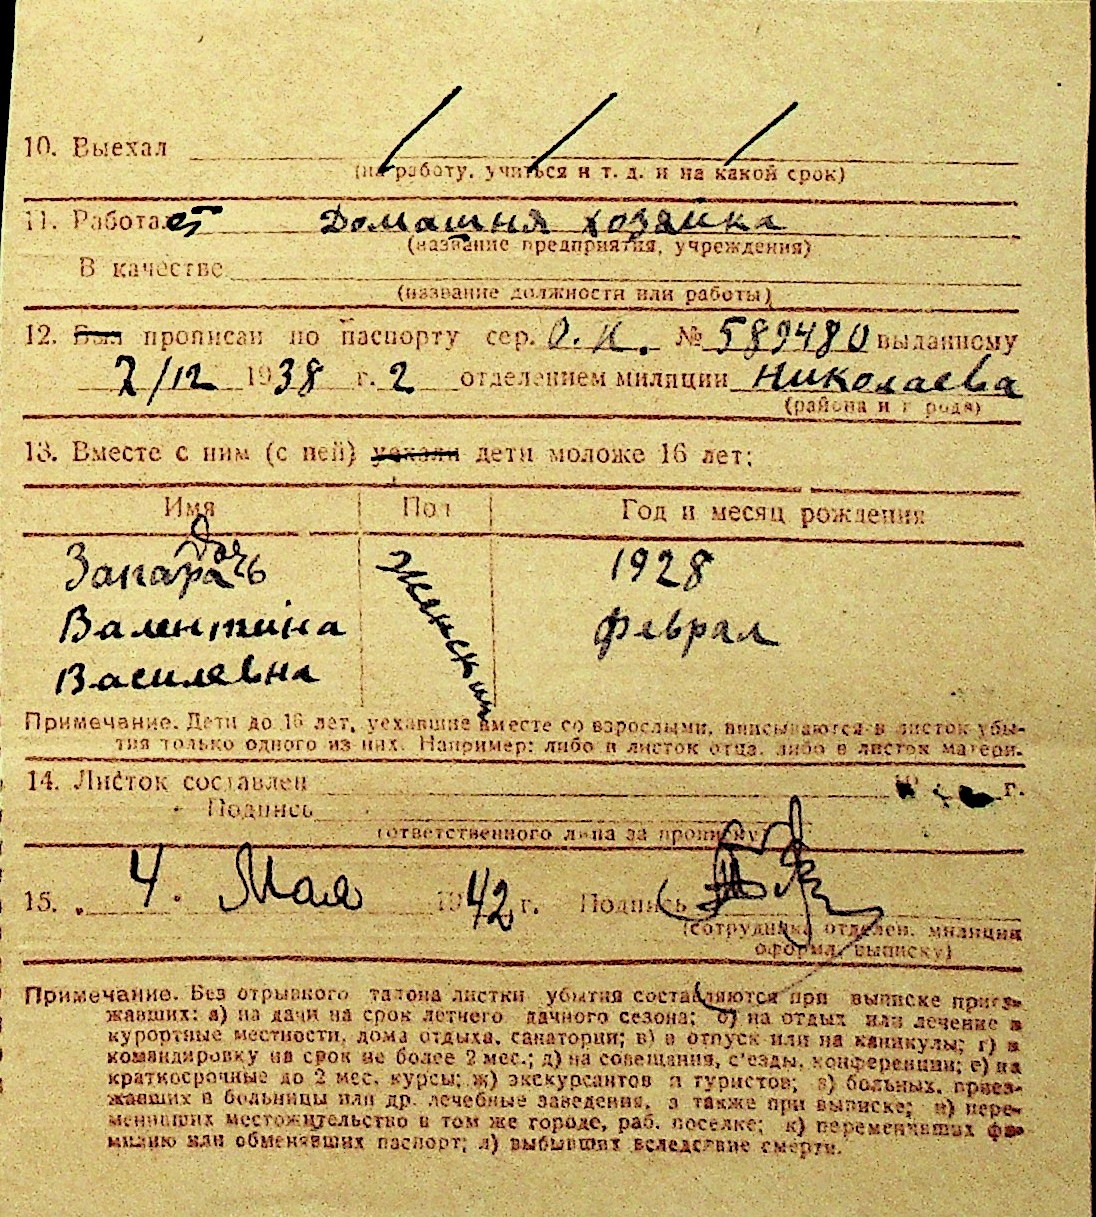 10. Выехал
(на работу, учиться и т. д. и на какой срок)
11. Работает Домашня хозяйка
(название предприятия, учреждения)
В качестве
(название должности или работы)
12. Был прописан по паспорту сер. О. К. № 589480 выданному
2/12 1938 г. 2 отделением милиции Николаева
(района и города)
13. Вместе с ним (с ней) уехали дети моложе 16 лет:
Имя Пол Год и месяц рождения
дочь
1928
Валентина Женский феврал
Василявна
Примечание. Дети до 16 лет, уехавшие вместе со взрослыми, вписываются в листок убы-
тия только одного из них. Например: либо в листок отца, либо в листок матери.
14. Листок составлен г.
Подпись
(ответственного лица за прописку)
15. 4. Мая 1942 г. Подпись
(сотрудника отделен. милиции
оформ. выписку)
Примечание. Без отрывного талона листки убытия составляются при выписке приез-
жавших: а) на дачи на срок летнего дачного сезона; б) на отдых или лечение в
курортные местности, дома отдыха, санатории; в) в отпуск или на каникулы; г) в
командировку на срок не более 2 мес.; д) на совещания, с'езды, конференции; е) на
краткосрочные до 2 мес. курсы; ж) экскурсантов и туристов; з) больных, приез-
жавших в больницы или др. лечебные заведения, а также при выписке; и) пере-
менивших местожительство в том же городе, раб. поселке; к) переменивших фа-
милию или обменявших паспорт; л) выбывших вследствие смерти.